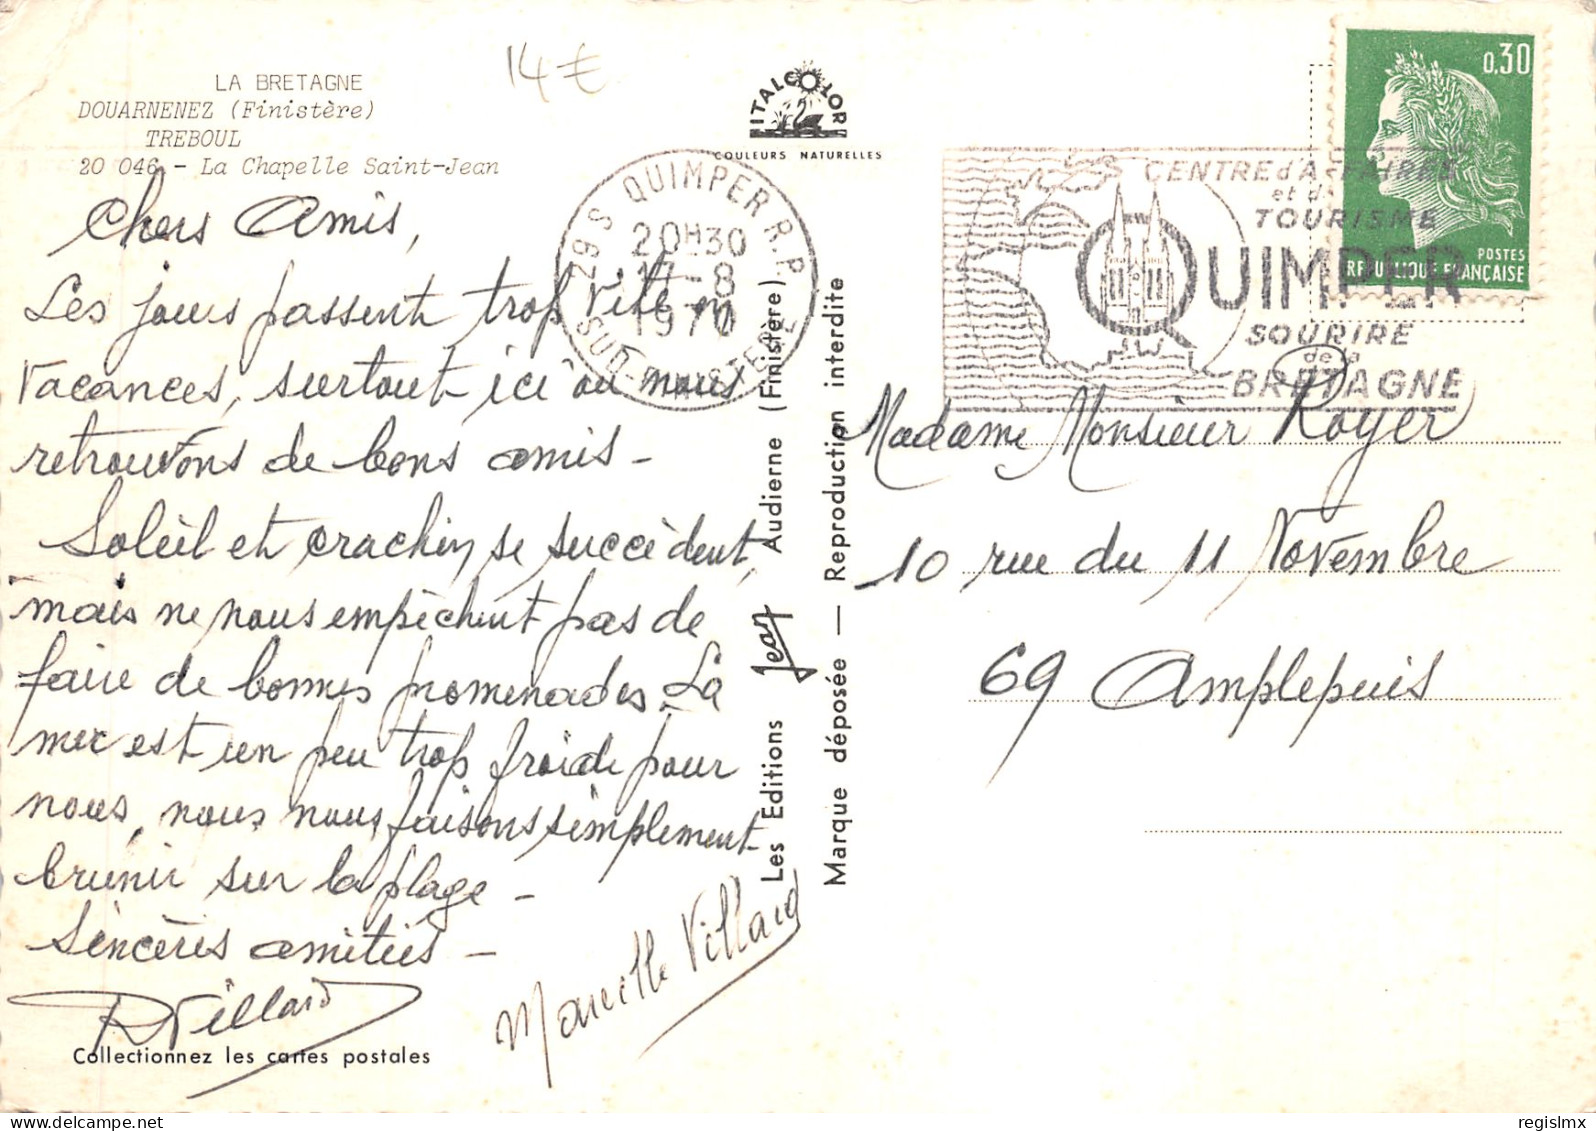 LA BRETAGNE
DOUARNENEZ (Finistère)
TREBOUL
20 046 - La Chapelle Saint-Jean
14€
ITALCOLOR
COULEURS NATURELLES
29 S QUIMPER R.P.
20H30
17-8
1970
SUD-FINISTERE
CENTRE d'AFFAIRES
et de
TOURISME
QUIMPER
SOURIRE
de la
BRETAGNE
0,30
POSTES
REPUBLIQUE FRANÇAISE
Chers Amis,
Les jours passent trop vite en
vacances, surtout ici où nous
retrouvons de bons amis -
Soleil et crachin se succèdent,
mais ne nous empêchent pas de
faire de bonnes promenades. La
mer est un peu trop froide pour
nous, nous nous faisons simplement
brunir sur la plage -
Sincères amitiés -
RVillard
Marcelle Villard
Collectionnez les cartes postales
Les Editions Jean Audierne (Finistère)
Marque déposée — Reproduction interdite
Madame Monsieur Royer
10 rue du 11 Novembre
69 Amplepuis
regislmx